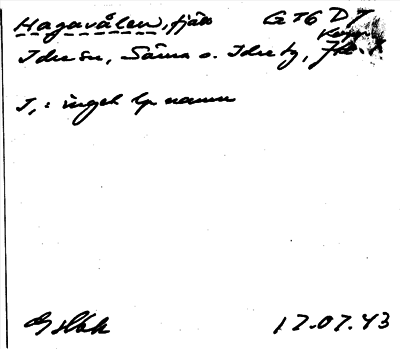 Hagavålen, fjäll GT6 D7
Idre sn, Särna o. Idre tg, Kopp.
I,: inget lp namn
17.07.43